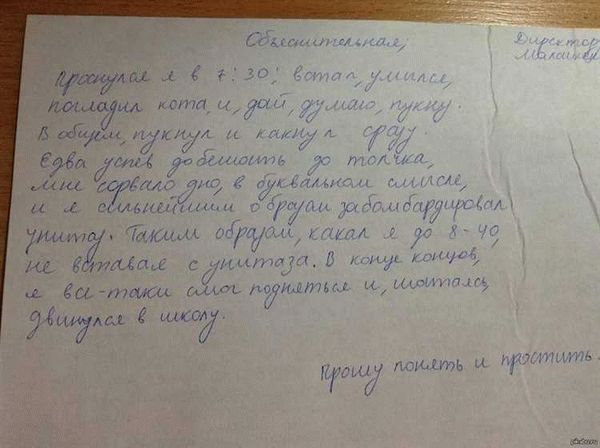 Объяснительная,
Директор
Проснулся я в 7:30; встал, умылся,
погладил кота, и, дай, думаю, пукну.
В общем, пукнул и какнул сразу.
Едва успев добежать до толчка,
мне сорвало дно, в буквальном смысле,
и я сильнейшим образом забомбардировал
унитаз. Таким образом, какал я до 8-40,
не вставая с унитаза. В конце концов,
я все-таки смог подняться и, шатаясь,
двинулся в школу.
Прошу понять и простить.